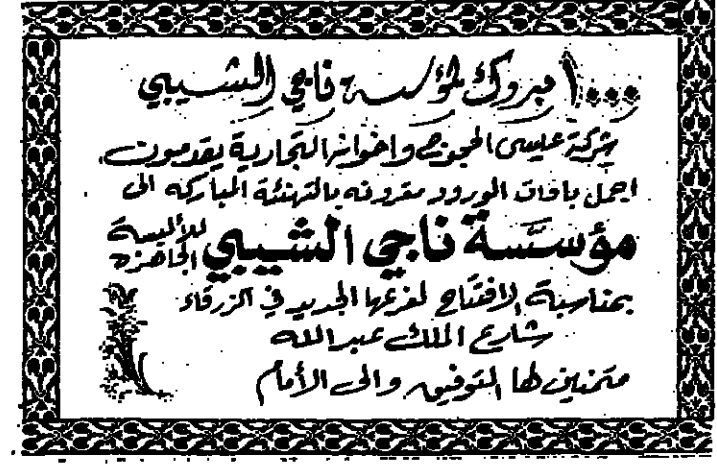 ١٠٠٠ مبروك لمؤسسة ناجي الشبيبي
شركة عيسى الحجوج واخوانه التجارية يقدمون
اجمل باقات الورود مقرونه بالتهنئة المباركه الى
مؤسسة ناجي الشبيبي للألبسة الجاهزه
بمناسبة الافتتاح لفرعها الجديد في الزرقاء
شارع الملك عبدالله
متمنين لها التوفيق والى الأمام